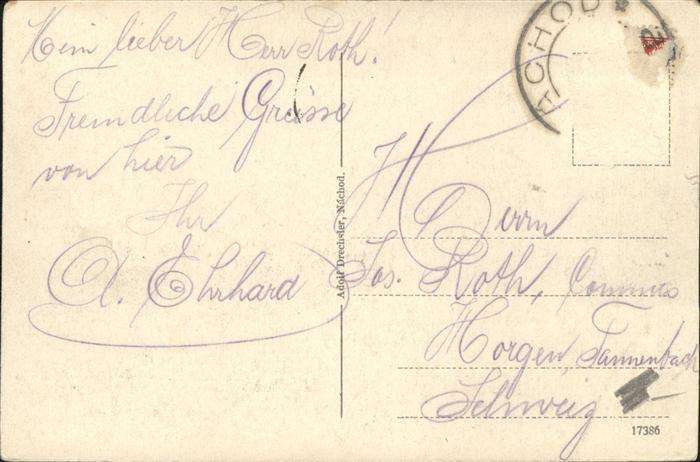 Mein lieber Herr Roth!
Freundliche Grüsse
von hier
Ihr
A. Ehrhard
Adolf Drechsler, Náchod.
ACHOD
Herrn
Jos. Roth, Commis
Horgen, Tannenbach
Schweiz
17386